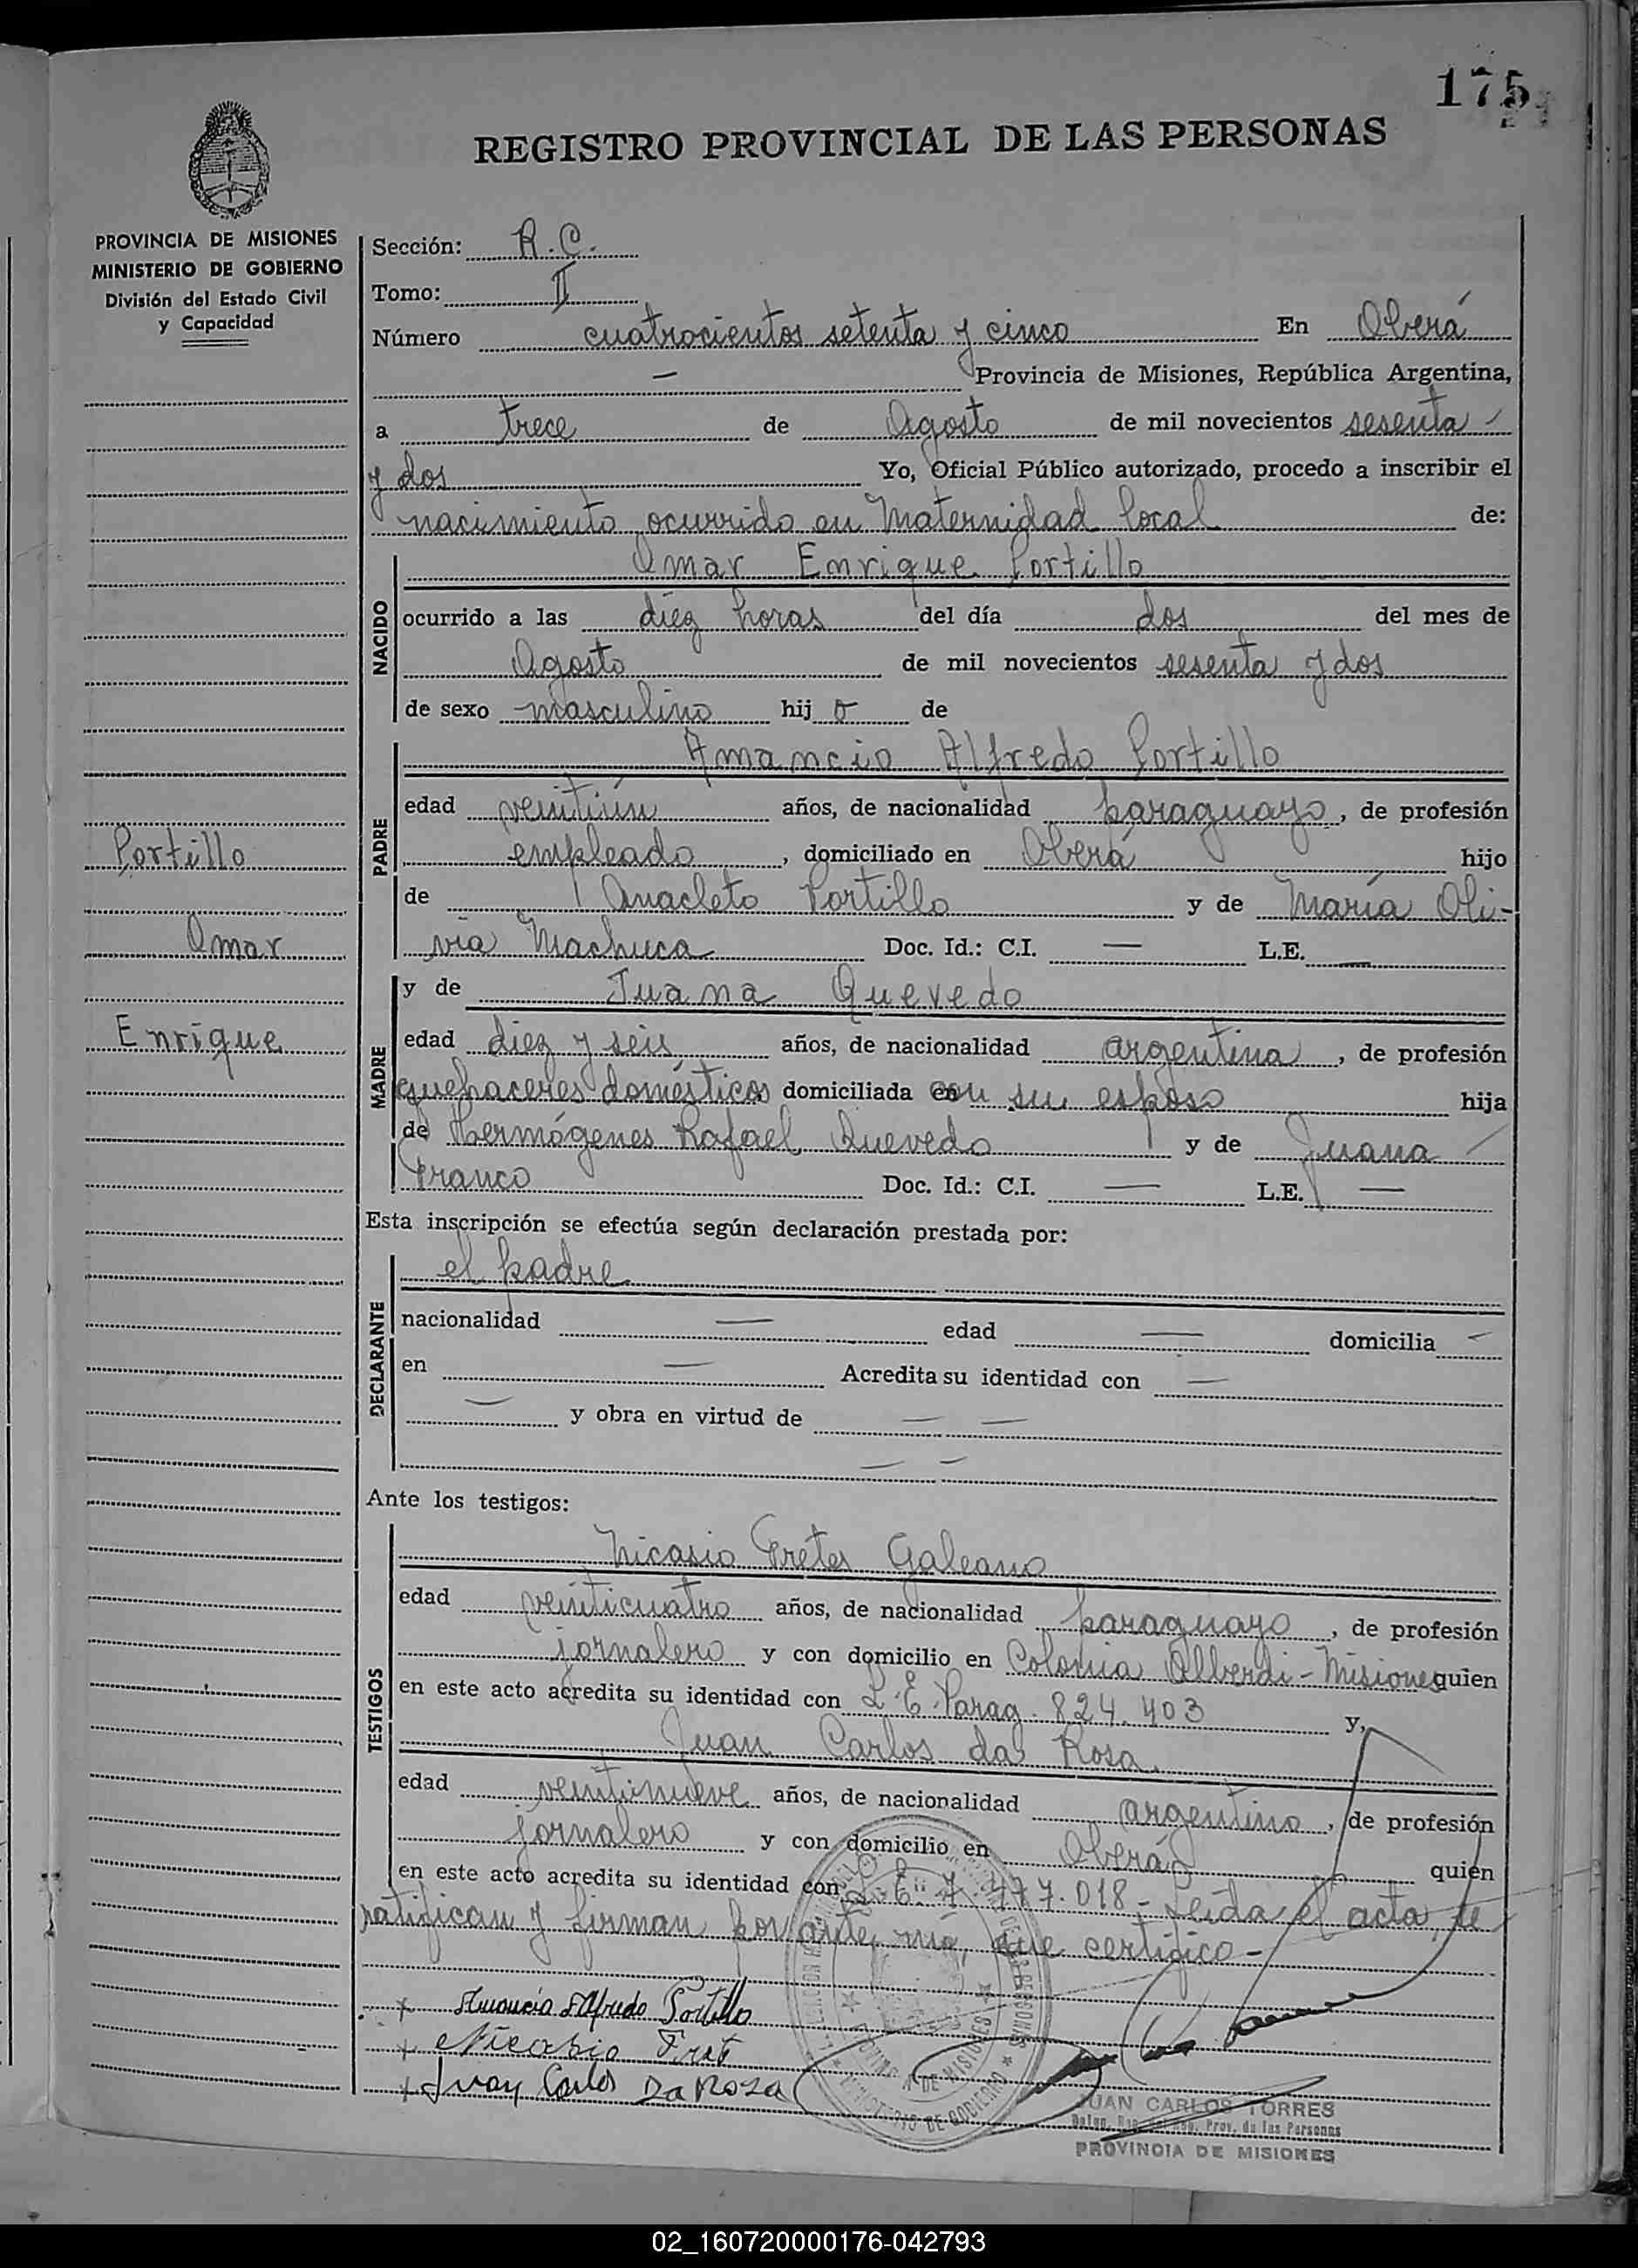 175
REGISTRO PROVINCIAL DE LAS PERSONAS
PROVINCIA DE MISIONES
MINISTERIO DE GOBIERNO
División del Estado Civil
y Capacidad
Sección: R.C.
Tomo: II
Número cuatrocientos setenta y cinco En Oberá
— Provincia de Misiones, República Argentina,
a trece de Agosto de mil novecientos sesenta
y dos Yo, Oficial Público autorizado, procedo a inscribir el
nacimiento ocurrido en Maternidad local de:
NACIDO
Omar Enrique Portillo
ocurrido a las diez horas del día dos del mes de
Agosto de mil novecientos sesenta y dos
de sexo masculino hij o de
PADRE
Amancio Alfredo Portillo
edad veintiún años, de nacionalidad paraguayo, de profesión
empleado, domiciliado en Oberá hijo
de Anacleto Portillo y de María Oli-
via Machuca Doc. Id.: C.I. — L.E. —
Portillo
Omar
Enrique
MADRE
y de Juana Quevedo
edad diez y seis años, de nacionalidad argentina, de profesión
quehaceres domésticos domiciliada con su esposo hija
de Hermógenes Rafael Quevedo y de Juana
Franco Doc. Id.: C.I. — L.E. —
Esta inscripción se efectúa según declaración prestada por:
DECLARANTE
el padre
nacionalidad — edad — domicilia —
en — Acredita su identidad con —
— y obra en virtud de — —
— —
Ante los testigos:
TESTIGOS
Nicasio Fretes Galeano
edad veinticuatro años, de nacionalidad paraguayo, de profesión
jornalero y con domicilio en Colonia Alberdi - Misiones quien
en este acto acredita su identidad con L.E. Parag. 824.403 y,
Juan Carlos da Rosa
edad veintinueve años, de nacionalidad argentino, de profesión
jornalero y con domicilio en Oberá quien
en este acto acredita su identidad con L.E. 7.477.018 - Leída el acta, le
ratifican y firman por ante mí, que certifico -
x Amancio Alfredo Portillo
x Nicasio Fret
x Juan Carlos Da Rosa
PROVINCIA DE MISIONES
MINISTERIO DE GOBIERNO
JUAN CARLOS TORRES
Prov. de las Personas
PROVINCIA DE MISIONES
02_160720000176-042793